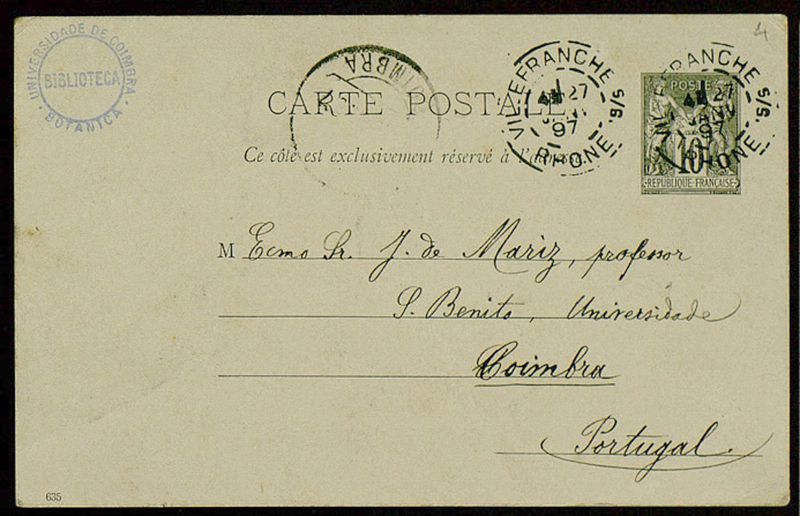 4
UNIVERSIDADE DE COIMBRA
BIBLIOTECA
BOTANICA
COIMBRA
CARTE POSTALE
Ce côté est exclusivement réservé à l'adresse
VILLEFRANCHE S/S.
27
JANV
97
RHONE
VILLEFRANCHE S/S.
27
JANV
97
RHONE
POSTES
10
REPUBLIQUE FRANÇAISE
M Ecmo Sr. J. de Mariz, professor
S. Benito, Universidade
Coimbra
Portugal.
635